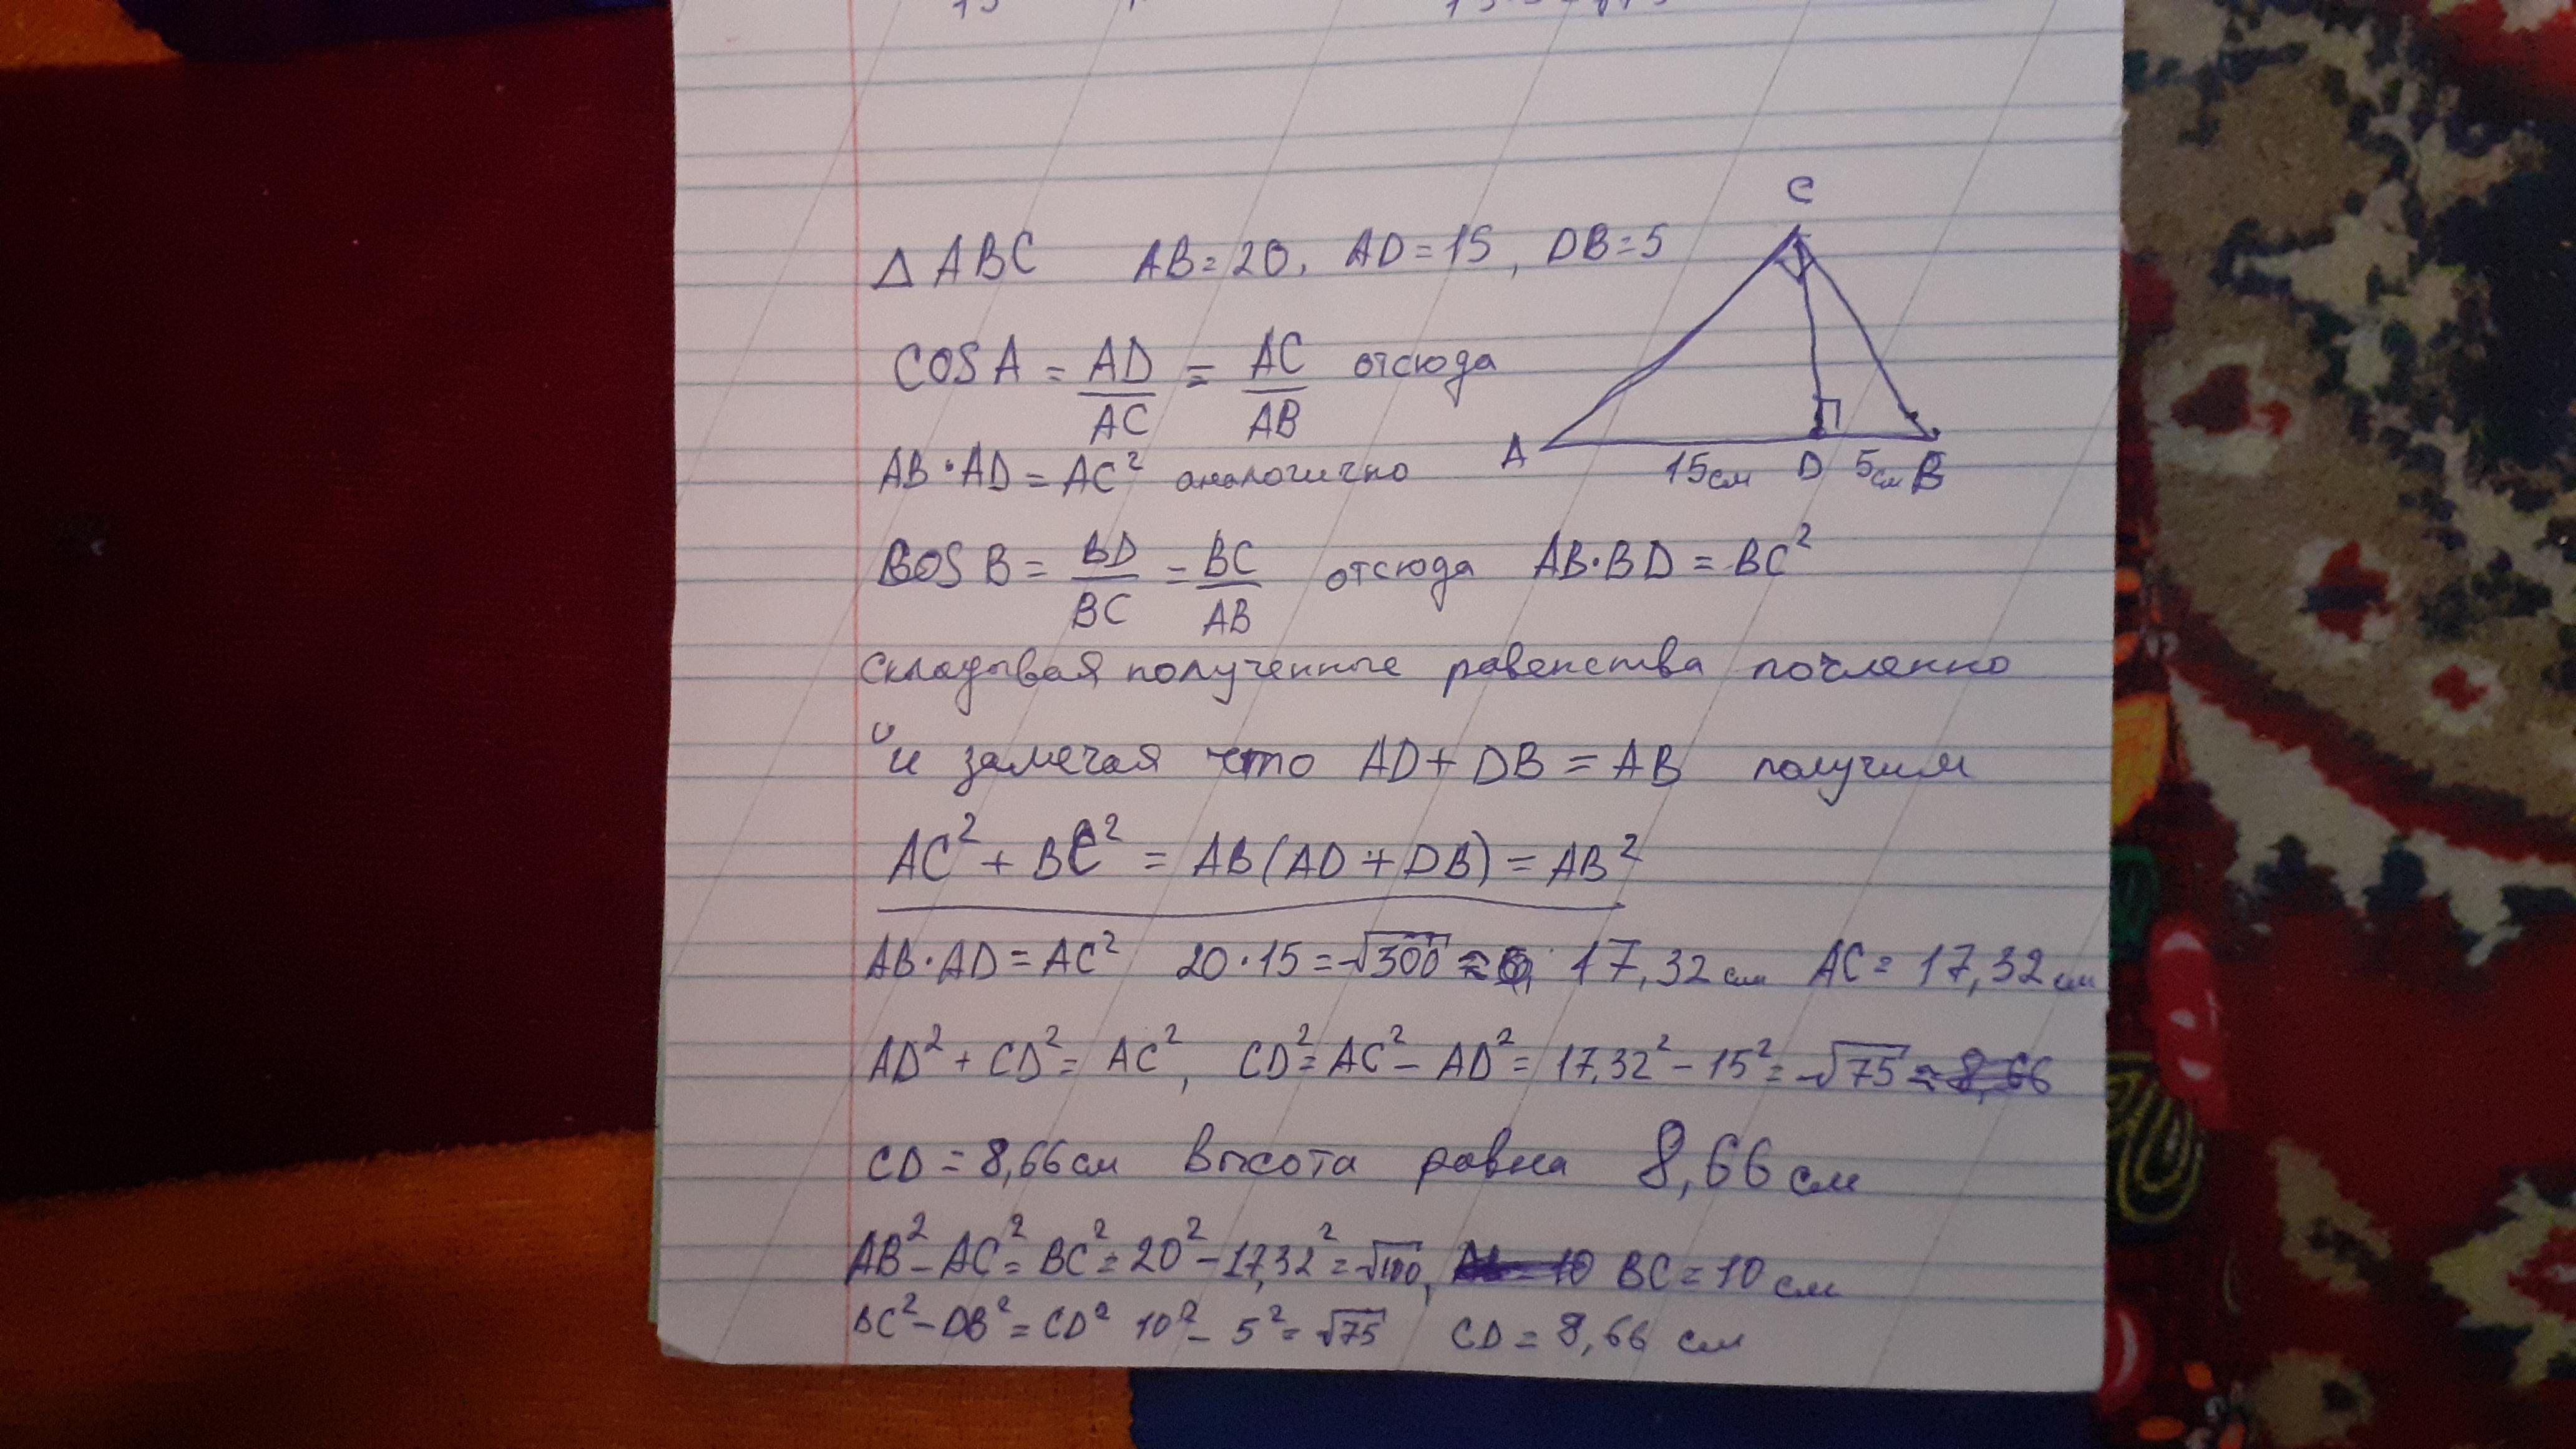 C
△ ABC AB = 20, AD = 15, DB = 5
COS A = AD/AC = AC/AB отсюда
A 15см D 5см B
AB·AD = AC² аналогично
COS B = BD/BC = BC/AB отсюда AB·BD = BC²
складывая полученные равенства почленно
и замечая что AD + DB = AB получим
AC² + BC² = AB(AD + DB) = AB²
AB·AD = AC² 20·15 = √300 ≈ 17,32 см AC = 17,32 см
AD² + CD² = AC², CD² = AC² – AD² = 17,32² – 15² = √75 ≈ 8,66
CD = 8,66 см Высота равна 8,66 см
AB² – AC² = BC² = 20² – 17,32² = √100, BC = 10 см
BC² – DB² = CD² 10² – 5² = √75 CD = 8,66 см